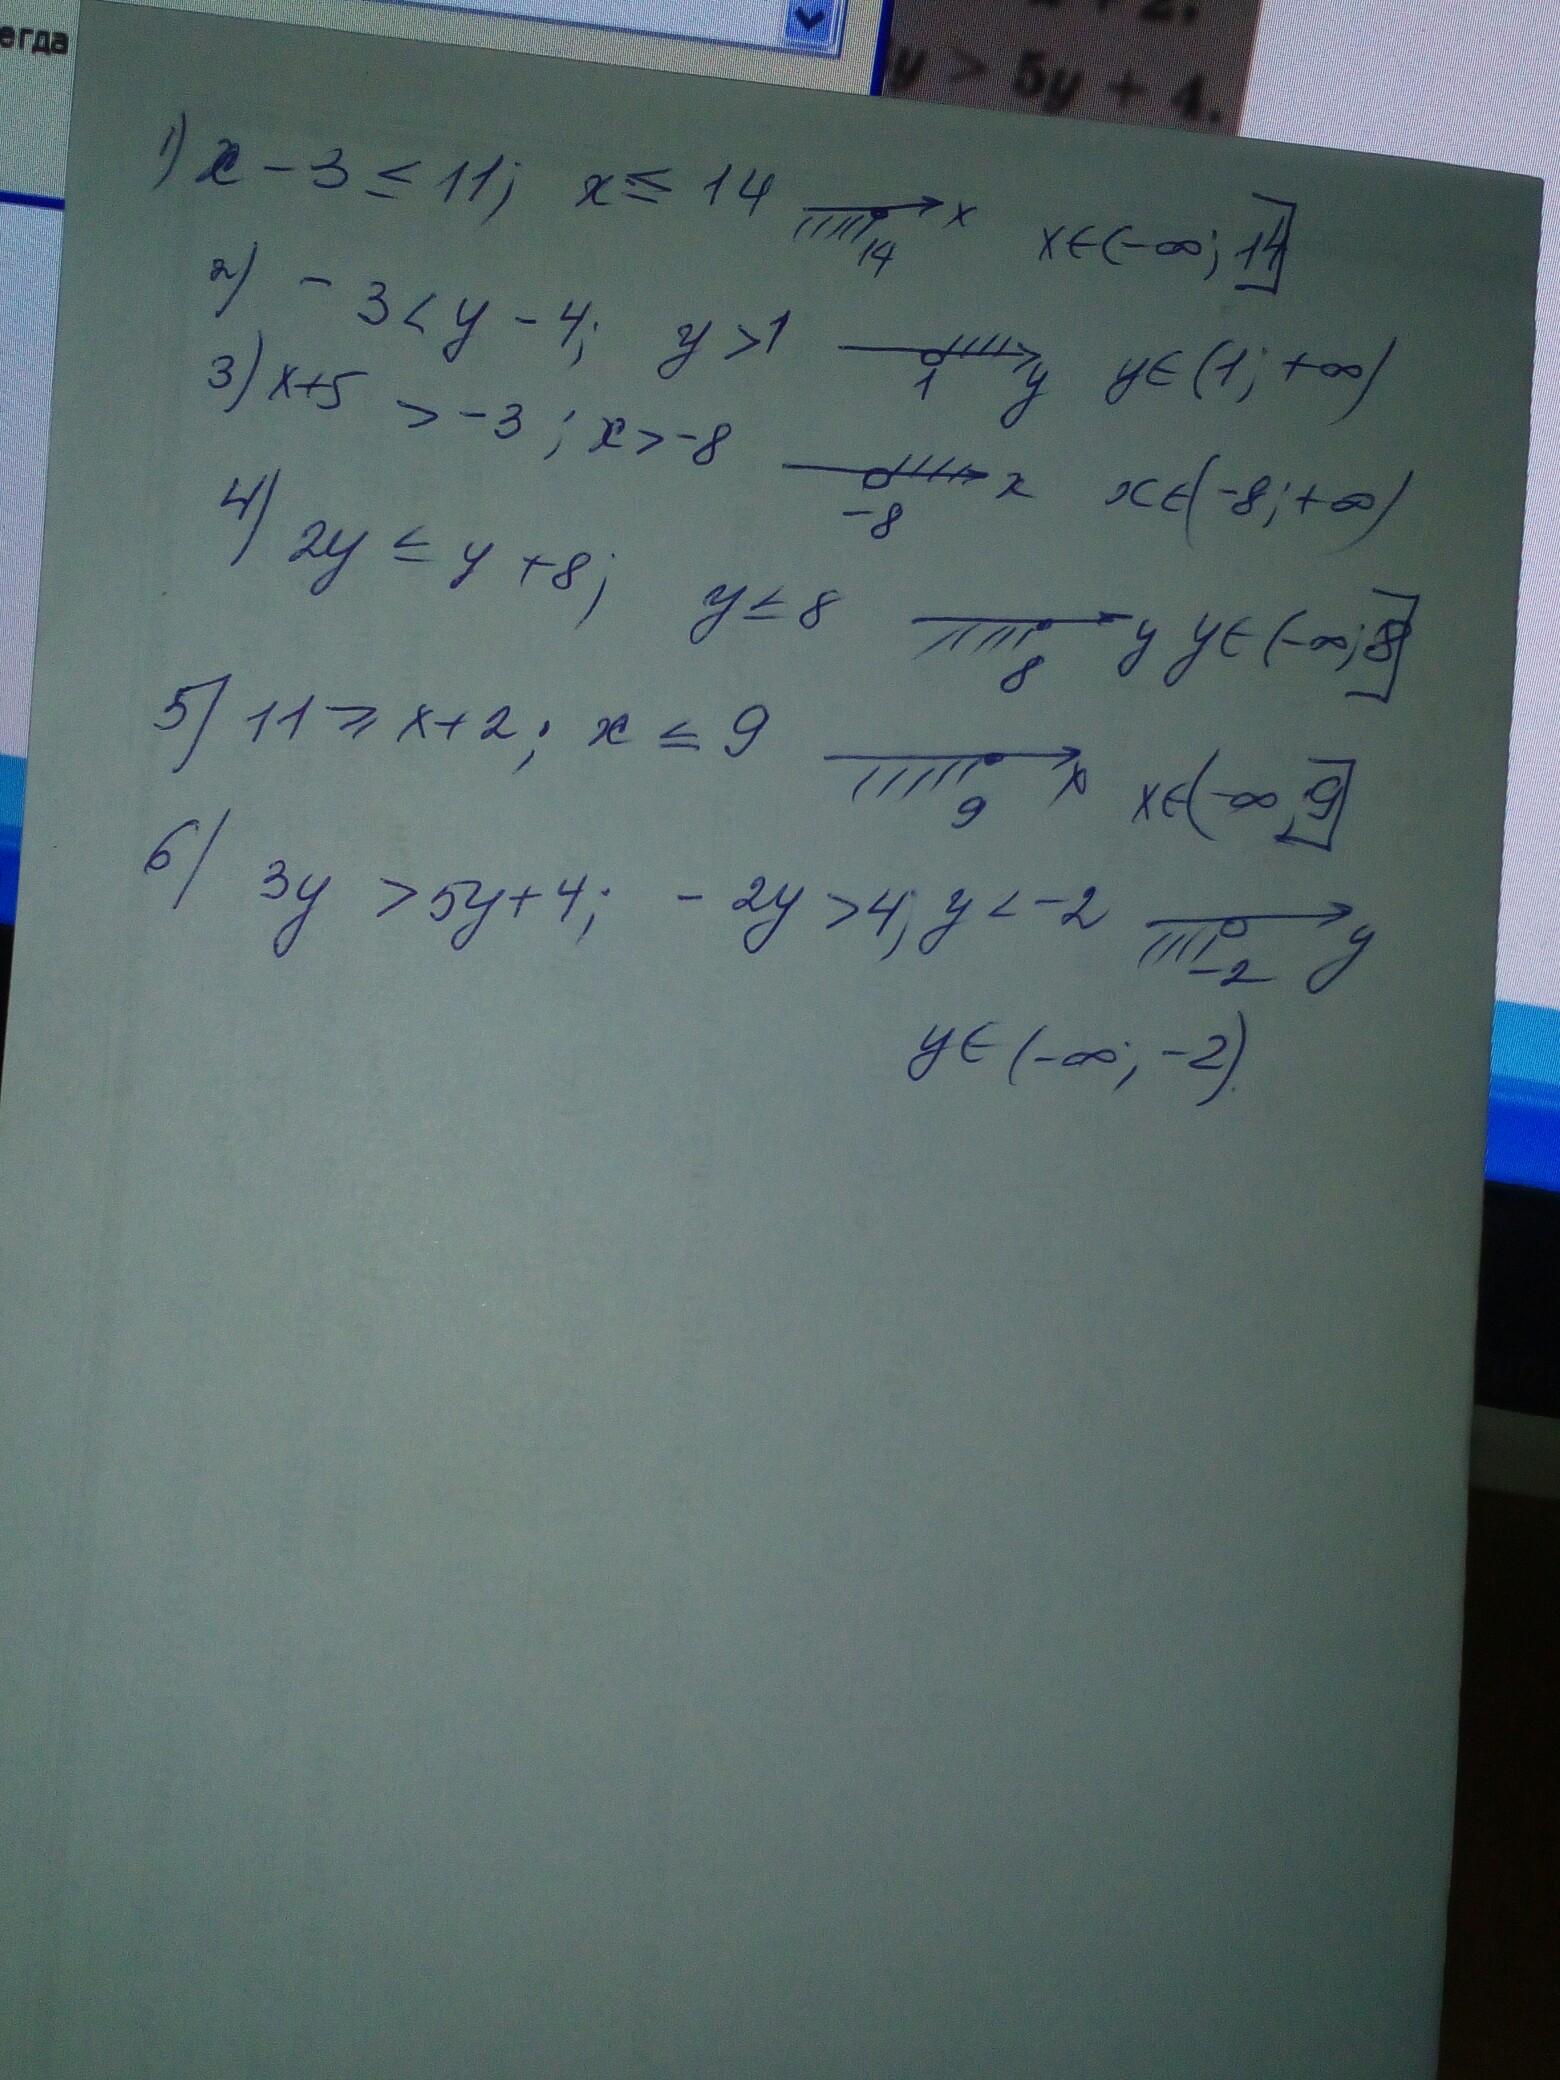 егда
y > 5y + 4.
1) x - 3 ≤ 11; x ≤ 14 x 14 x∈(-∞; 14]
2) - 3 < y - 4; y > 1 1 y y∈(1; +∞)
3) x+5 > -3; x > -8 -8 x x∈(-8; +∞)
4) 2y ≤ y + 8; y ≤ 8 8 y y∈(-∞; 8]
5) 11 ≥ x+2; x ≤ 9 9 x x∈(-∞; 9]
6) 3y > 5y+4; - 2y > 4; y < -2 -2 y
y∈(-∞; -2).